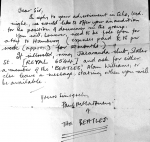 Dear Sir,
In reply to your advertisement in Echo, last
night, we would like to offer you an audition
for the position of drummer in the group.
You will, however, need to be free soon for
a trip to Hamburg (expenses paid £18 per
week (approx.) for 2 months.)
If interested, ring Jacaranda club, Slater
St. [ROYAL 6544] and ask for either
a member of the 'BEATLES', Alan Williams, or
else leave a message, stating when you will
be available
Yours sincerely,
Paul McCartney
of
THE BEATLES.